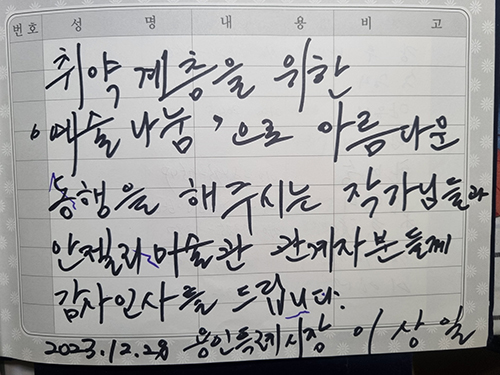 번호 성명 내용 비고
취약계층을 위한
'예술나눔'으로 아름다운
동행을 해주시는 작가님들과
안젤리미술관 관계자분들께
감사인사를 드립니다.
2023.12.28 용인특례시장 이상일